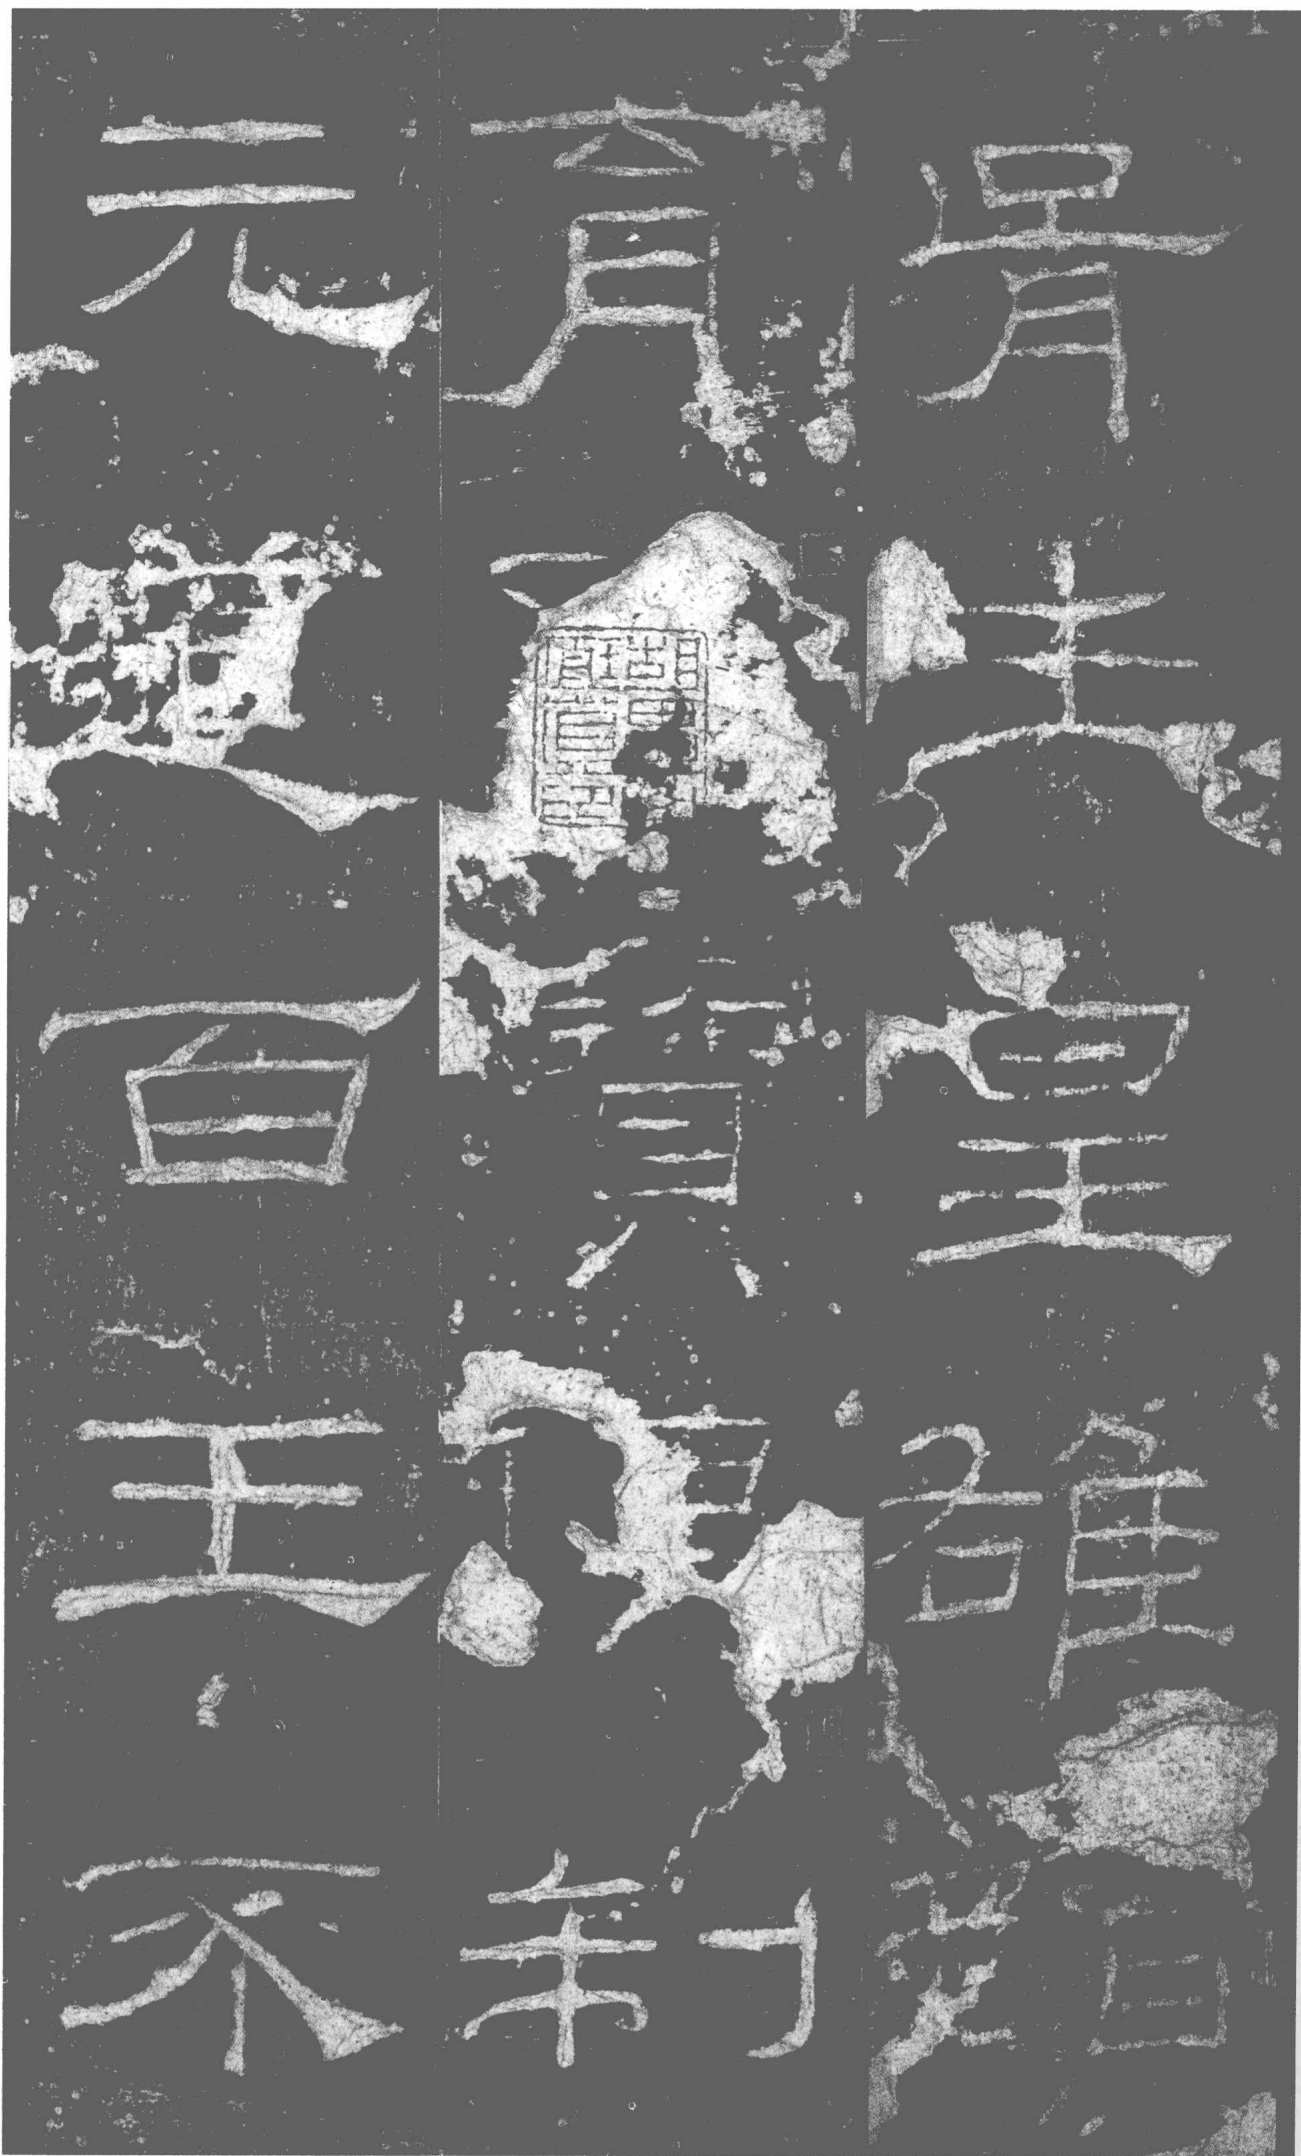 胥生皇雄顏
育寶俱制
元道百王不